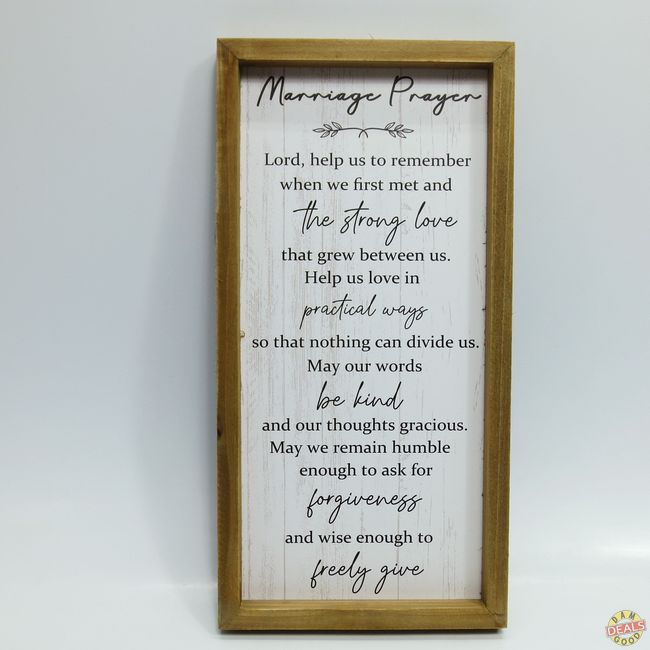 Marriage Prayer
Lord, help us to remember
when we first met and
the strong love
that grew between us.
Help us love in
practical ways
so that nothing can divide us.
May our words
be kind
and our thoughts gracious.
May we remain humble
enough to ask for
forgiveness
and wise enough to
freely give
DAM
DEALS
GOOD